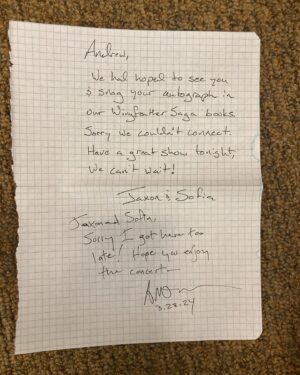 Andrew,
We had hoped to see you
& snag your autograph in
our Wingfeather Saga books.
Sorry we couldn't connect.
Have a great show tonight,
we can't wait!
Jaxon & Sofia
Jaxon and Sofia,
Sorry I got here too
late! Hope you enjoy
the concert—
3.28.24